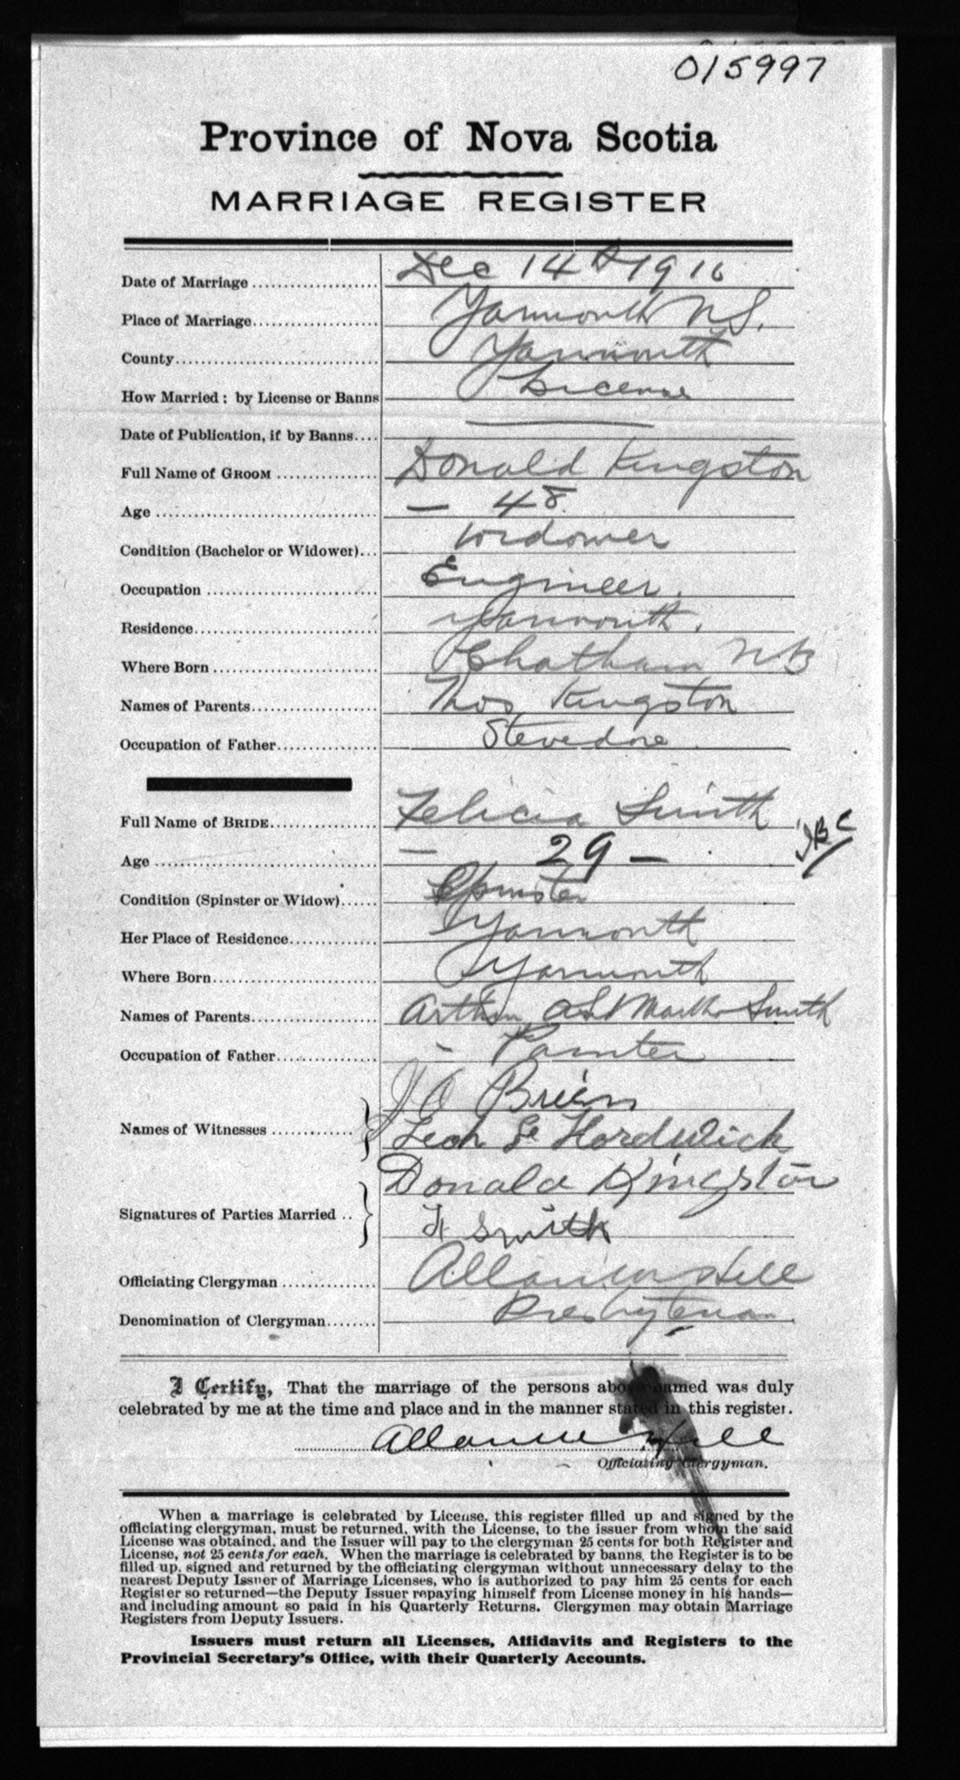 015997
Province of Nova Scotia
MARRIAGE REGISTER
Date of Marriage Dec 14th 1916
Place of Marriage Yarmouth N.S.
County Yarmouth
How Married: by License or Banns License
Date of Publication, if by Banns
Full Name of GROOM Donald Kingston
Age — 48
Condition (Bachelor or Widower) Widower
Occupation Engineer.
Residence Yarmouth.
Where Born Chatham NB
Names of Parents Thos Kingston
Occupation of Father Stevedore
Full Name of BRIDE Felicia Smith
Age — 29 —
Condition (Spinster or Widow) Spinster
Her Place of Residence Yarmouth
Where Born Yarmouth
Names of Parents Arthur and Martha Smith
Occupation of Father - Painter
J O Brien
Names of Witnesses
Hardwick
Donald Kingston
Signatures of Parties Married
F Smith
Officiating Clergyman Hill
Denomination of Clergyman Presbyterian
I Certify, That the marriage of the persons above named was duly
celebrated by me at the time and place and in the manner stated in this register.
Hill
Officiating Clergyman.
When a marriage is celebrated by License, this register filled up and signed by the
officiating clergyman, must be returned, with the License, to the issuer from whom the said
License was obtained, and the Issuer will pay to the clergyman 25 cents for both Register and
License, not 25 cents for each. When the marriage is celebrated by banns, the Register is to be
filled up, signed and returned by the officiating clergyman without unnecessary delay to the
nearest Deputy Issuer of Marriage Licenses, who is authorized to pay him 25 cents for each
Register so returned—the Deputy Issuer repaying himself from License money in his hands—
and including amount so paid in his Quarterly Returns. Clergymen may obtain Marriage
Registers from Deputy Issuers.
Issuers must return all Licenses, Affidavits and Registers to the
Provincial Secretary's Office, with their Quarterly Accounts.